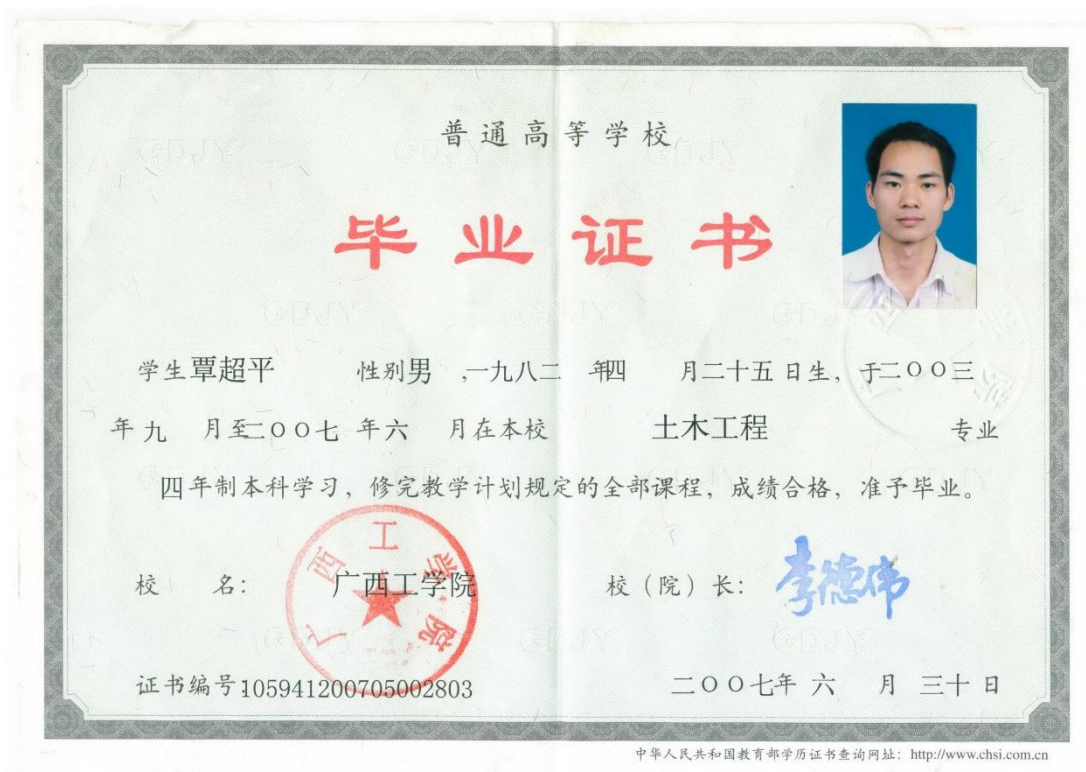 普通高等学校
毕业证书
学生覃超平 性别男 ,一九八二 年四 月二十五日生，于二〇〇三
年九 月至二〇〇七 年六 月在本校 土木工程 专业
四年制本科学习，修完教学计划规定的全部课程，成绩合格，准予毕业。
校 名: 广西工学院
校（院）长: 李德伟
广西工学院
证书编号105941200705002803
二〇〇七年 六 月 三十 日
中华人民共和国教育部学历证书查询网址: http://www.chsi.com.cn